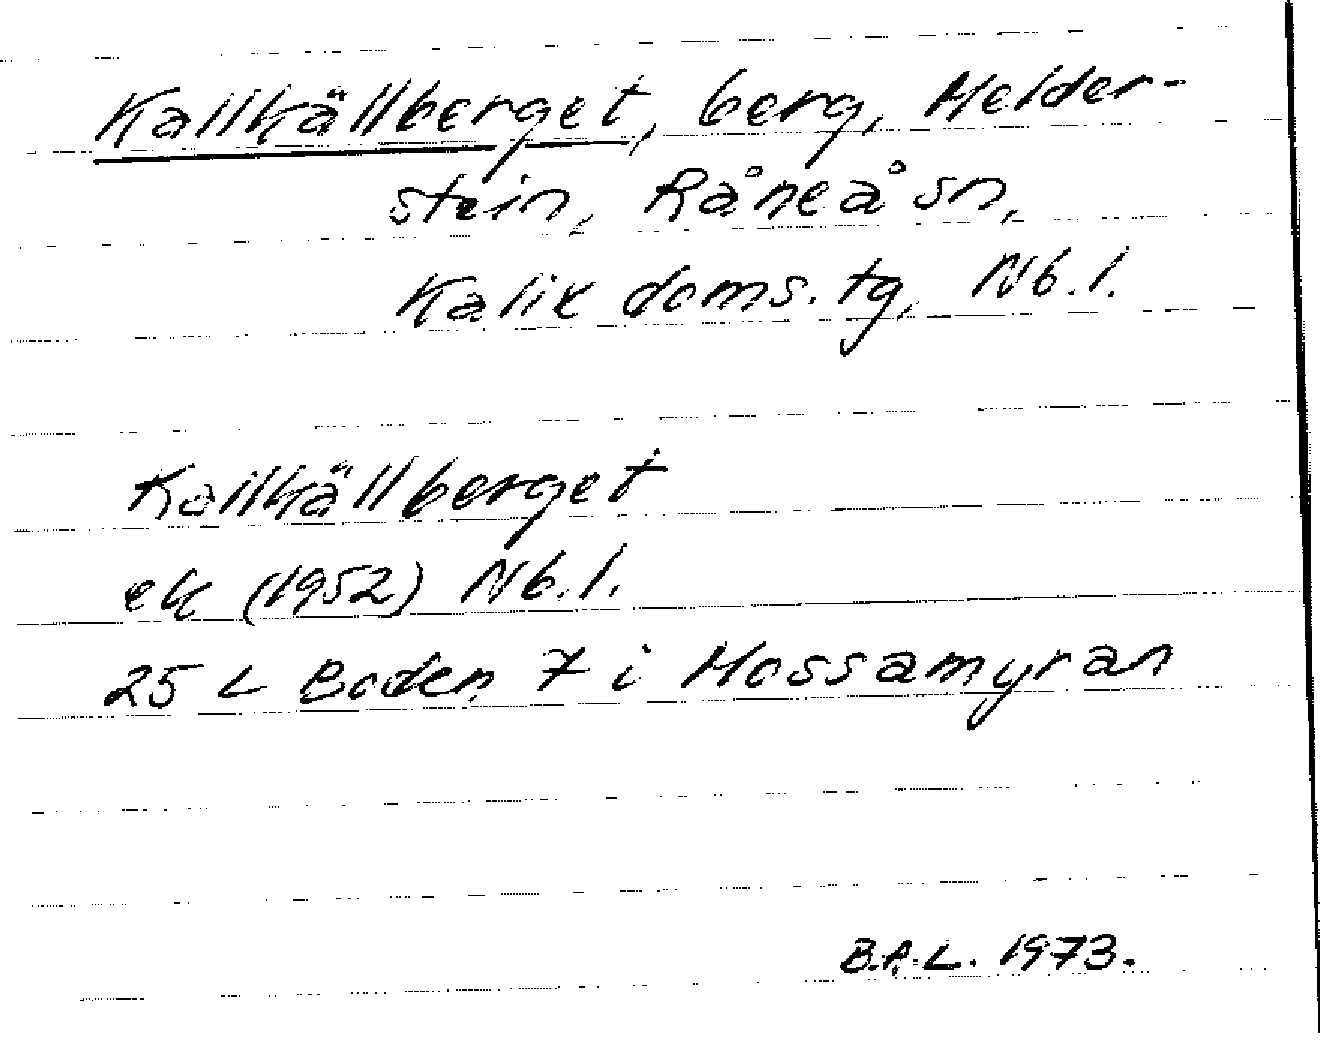 Kallkällberget, berg, Melder-
stein, Råneå sn,
Kalix doms. tg, Nb. l.
Kallkällberget
ek (1952) Nb. l.
25 L Boden 7 i Mossamyran
B.A.L. 1973.